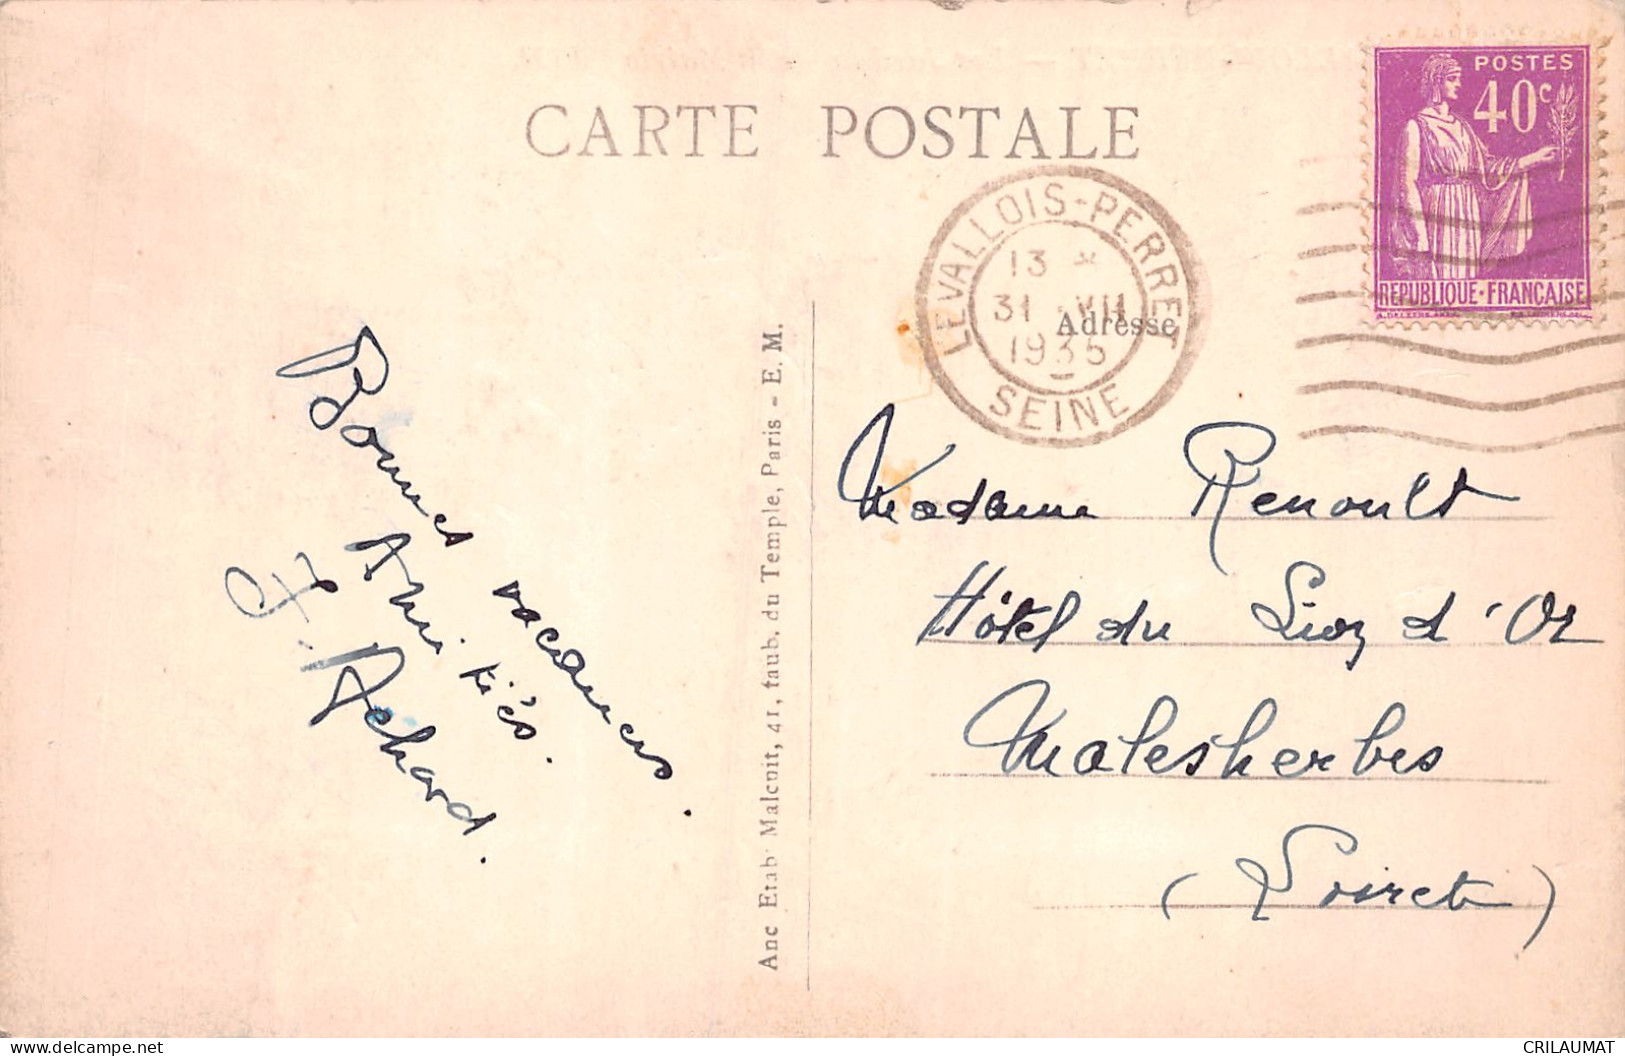 CARTE POSTALE
POSTES
40c
REPUBLIQUE·FRANCAISE
LEVALLOIS-PERRET
13 *
31 -VII
1935
SEINE
Adresse
Bonnes vacances.
Amitiés.
J. Achard.
Anc Etab Malcuit, 41, faub. du Temple, Paris - E. M.
Madame Renoult
Hôtel du Lion d'Or
Malesherbes
(Loiret)
delcampe.net
CRILAUMAT